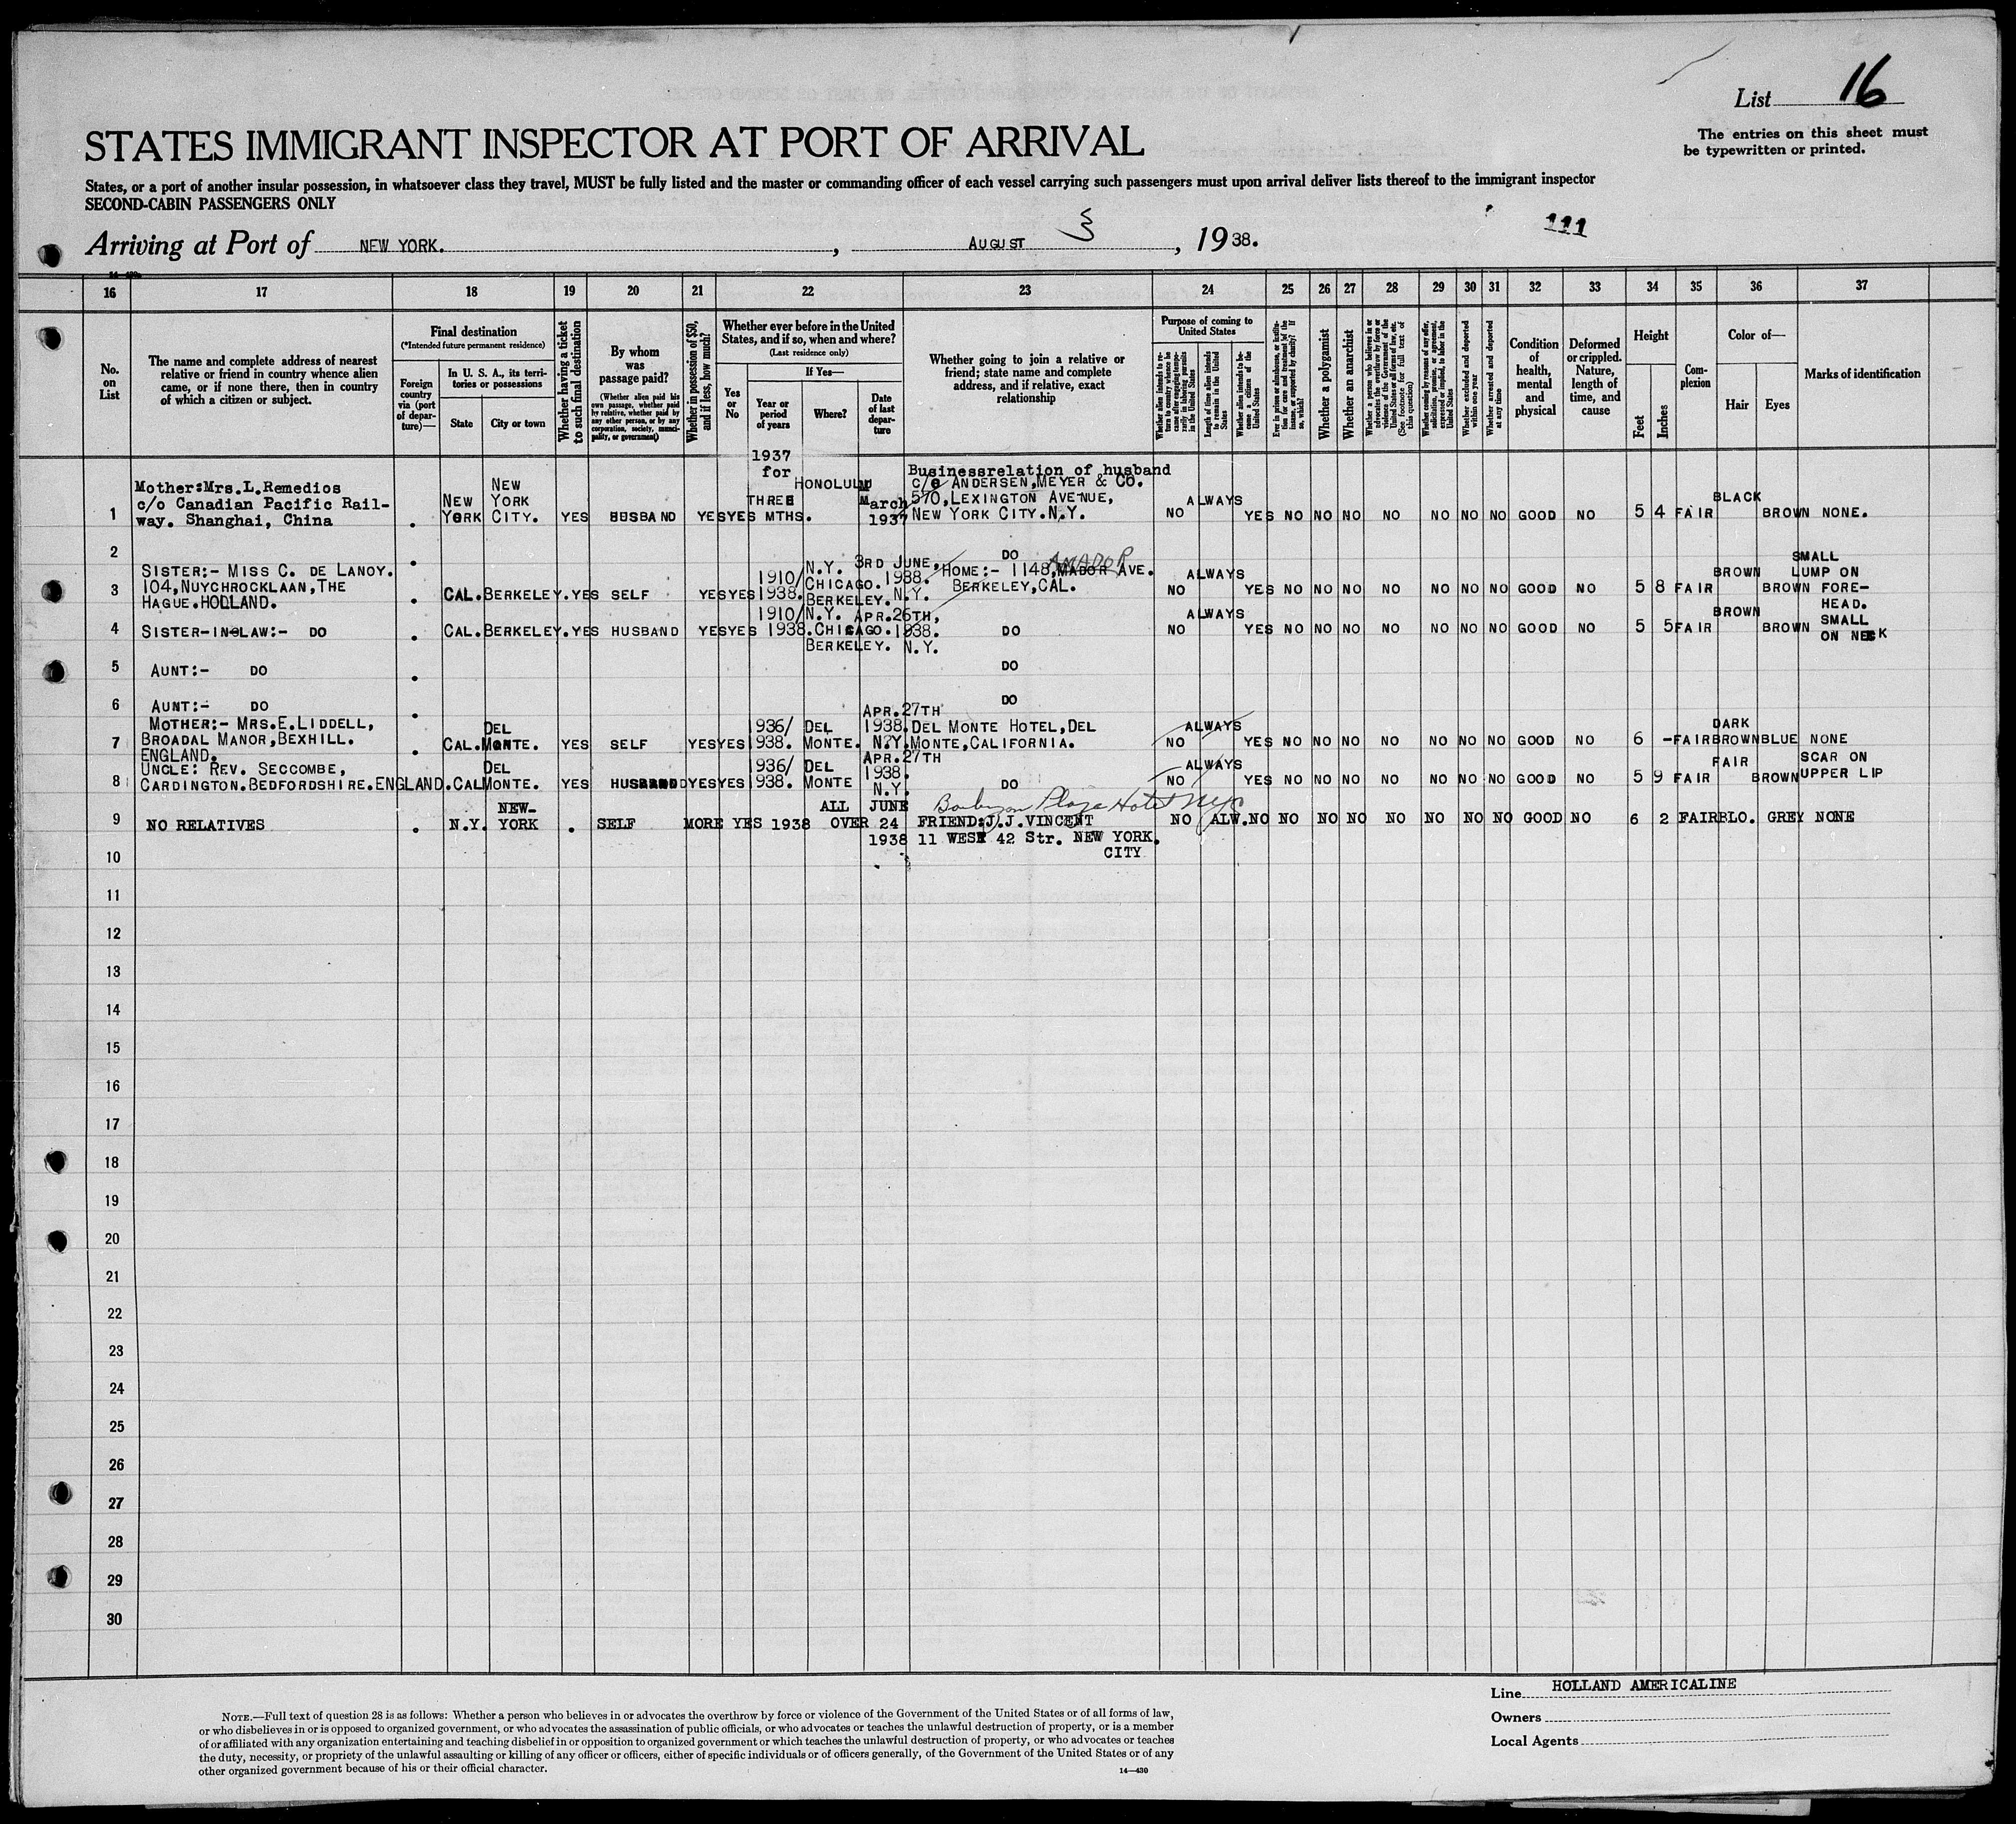 List 16
The entries on this sheet must
be typewritten or printed.
STATES IMMIGRANT INSPECTOR AT PORT OF ARRIVAL
States, or a port of another insular possession, in whatsoever class they travel, MUST be fully listed and the master or commanding officer of each vessel carrying such passengers must upon arrival deliver lists thereof to the immigrant inspector
SECOND-CABIN PASSENGERS ONLY
111
Arriving at Port of NEW YORK. , AUGUST 3 , 1938.
16 17 18 19 20 21 22 23 24 25 26 27 28 29 30 31 32 33 34 35 36 37
No. on List
The name and complete address of nearest
relative or friend in country whence alien
came, or if none there, then in country
of which a citizen or subject.
Final destination
(*Intended future permanent residence)
Foreign country via (port of departure)—
In U. S. A., its territories or possessions
State
City or town
Whether having a ticket to such final destination
By whom was passage paid?
(Whether alien paid his own passage, whether paid by relative, whether paid by any other person, or by any corporation, society, municipality, or government)
Whether in possession of $50, and if less, how much?
Whether ever before in the United States, and if so, when and where?
(Last residence only)
Yes or No
If Yes—
Year or period of years
Where?
Date of last departure
Whether going to join a relative or
friend; state name and complete
address, and if relative, exact
relationship
Purpose of coming to United States
Whether alien intends to return to country whence he came after engaging temporarily in laboring pursuits in the United States
Length of time alien intends to remain in the United States
Whether alien intends to become a citizen of the United States
Ever in prison or almshouse, or institution for care and treatment of the insane, or supported by charity? If so, which?
Whether a polygamist
Whether an anarchist
Whether a person who believes in or advocates the overthrow by force or violence of the Government of the United States or all forms of law, etc. (See footnote for full text of this question)
Whether coming by reasons of any offer, solicitation, promise, or agreement, expressed or implied, to labor in the United States
Whether excluded and deported within one year
Whether arrested and deported at any time
Condition of health, mental and physical
Deformed or crippled. Nature, length of time, and cause
Height
Feet
Inches
Complexion
Color of—
Hair
Eyes
Marks of identification
1 Mother:Mrs.L.Remedios
c/o Canadian Pacific Rail-
way. Shanghai, China
NEW YORK NEW YORK CITY. YES HUSBAND YES YES 1937 for THREE MTHS. HONOLULU March 1937
Businessrelation of husband
c/o ANDERSEN,MEYER & CO.
570,LEXINGTON AVENUE,
NEW YORK CITY.N.Y.
NO ALWAYS YES NO NO NO NO NO NO NO GOOD NO 5 4 FAIR BLACK BROWN NONE.
2 DO
3 SISTER:- MISS C. DE LANOY.
104,NUYCHROCKLAAN,THE
HAGUE.HOLLAND.
CAL. BERKELEY. YES SELF YES YES 1910/1938. N.Y. CHICAGO. BERKELEY. 3RD JUNE, 1938. N.Y.
HOME:- 1148,MADOR AVE. AMADOR
BERKELEY,CAL.
NO ALWAYS YES NO NO NO NO NO NO NO GOOD NO 5 8 FAIR BROWN BROWN SMALL LUMP ON FORE-HEAD.
4 SISTER-IN-LAW:- DO
CAL. BERKELEY. YES HUSBAND YES YES 1910/1938. N.Y. CHICAGO. BERKELEY. APR.26TH, 1938. N.Y.
DO
NO ALWAYS YES NO NO NO NO NO NO NO GOOD NO 5 5 FAIR BROWN BROWN SMALL ON NECK
5 AUNT:- DO DO
6 AUNT:- DO DO
7 MOTHER:- MRS.E.LIDDELL,
BROADAL MANOR,BEXHILL.
ENGLAND.
CAL. DEL MONTE. YES SELF YES YES 1936/938. DEL MONTE. APR.27TH 1938. N.Y.
DEL MONTE HOTEL,DEL
MONTE,CALIFORNIA.
NO ALWAYS YES NO NO NO NO NO NO NO GOOD NO 6 - FAIR DARK BROWN BLUE NONE
8 UNCLE: REV. SECCOMBE,
CARDINGTON.BEDFORDSHIRE.ENGLAND.
CAL DEL MONTE. YES HUSBAND YES YES 1936/938. DEL MONTE APR.27TH 1938. N.Y.
DO
NO ALWAYS YES NO NO NO NO NO NO NO GOOD NO 5 9 FAIR FAIR BROWN SCAR ON UPPER LIP
9 NO RELATIVES
N.Y. NEW-YORK . SELF MORE YES 1938 ALL OVER JUNE 24 1938
Barbizon Plaza Hotel NYC
FRIEND:J.J.VINCENT
11 WEST 42 Str. NEW YORK.
CITY
NO ALW. NO NO NO NO NO NO NO NO GOOD NO 6 2 FAIR BLO. GREY NONE
10
11
12
13
14
15
16
17
18
19
20
21
22
23
24
25
26
27
28
29
30
Line HOLLAND AMERICALINE
Owners
Local Agents
NOTE.—Full text of question 28 is as follows: Whether a person who believes in or advocates the overthrow by force or violence of the Government of the United States or of all forms of law,
or who disbelieves in or is opposed to organized government, or who advocates the assassination of public officials, or who advocates or teaches the unlawful destruction of property, or is a member
of or affiliated with any organization entertaining and teaching disbelief in or opposition to organized government or which teaches the unlawful destruction of property, or who advocates or teaches
the duty, necessity, or propriety of the unlawful assaulting or killing of any officer or officers, either of specific individuals or of officers generally, of the Government of the United States or of any
other organized government because of his or their official character.
14—430